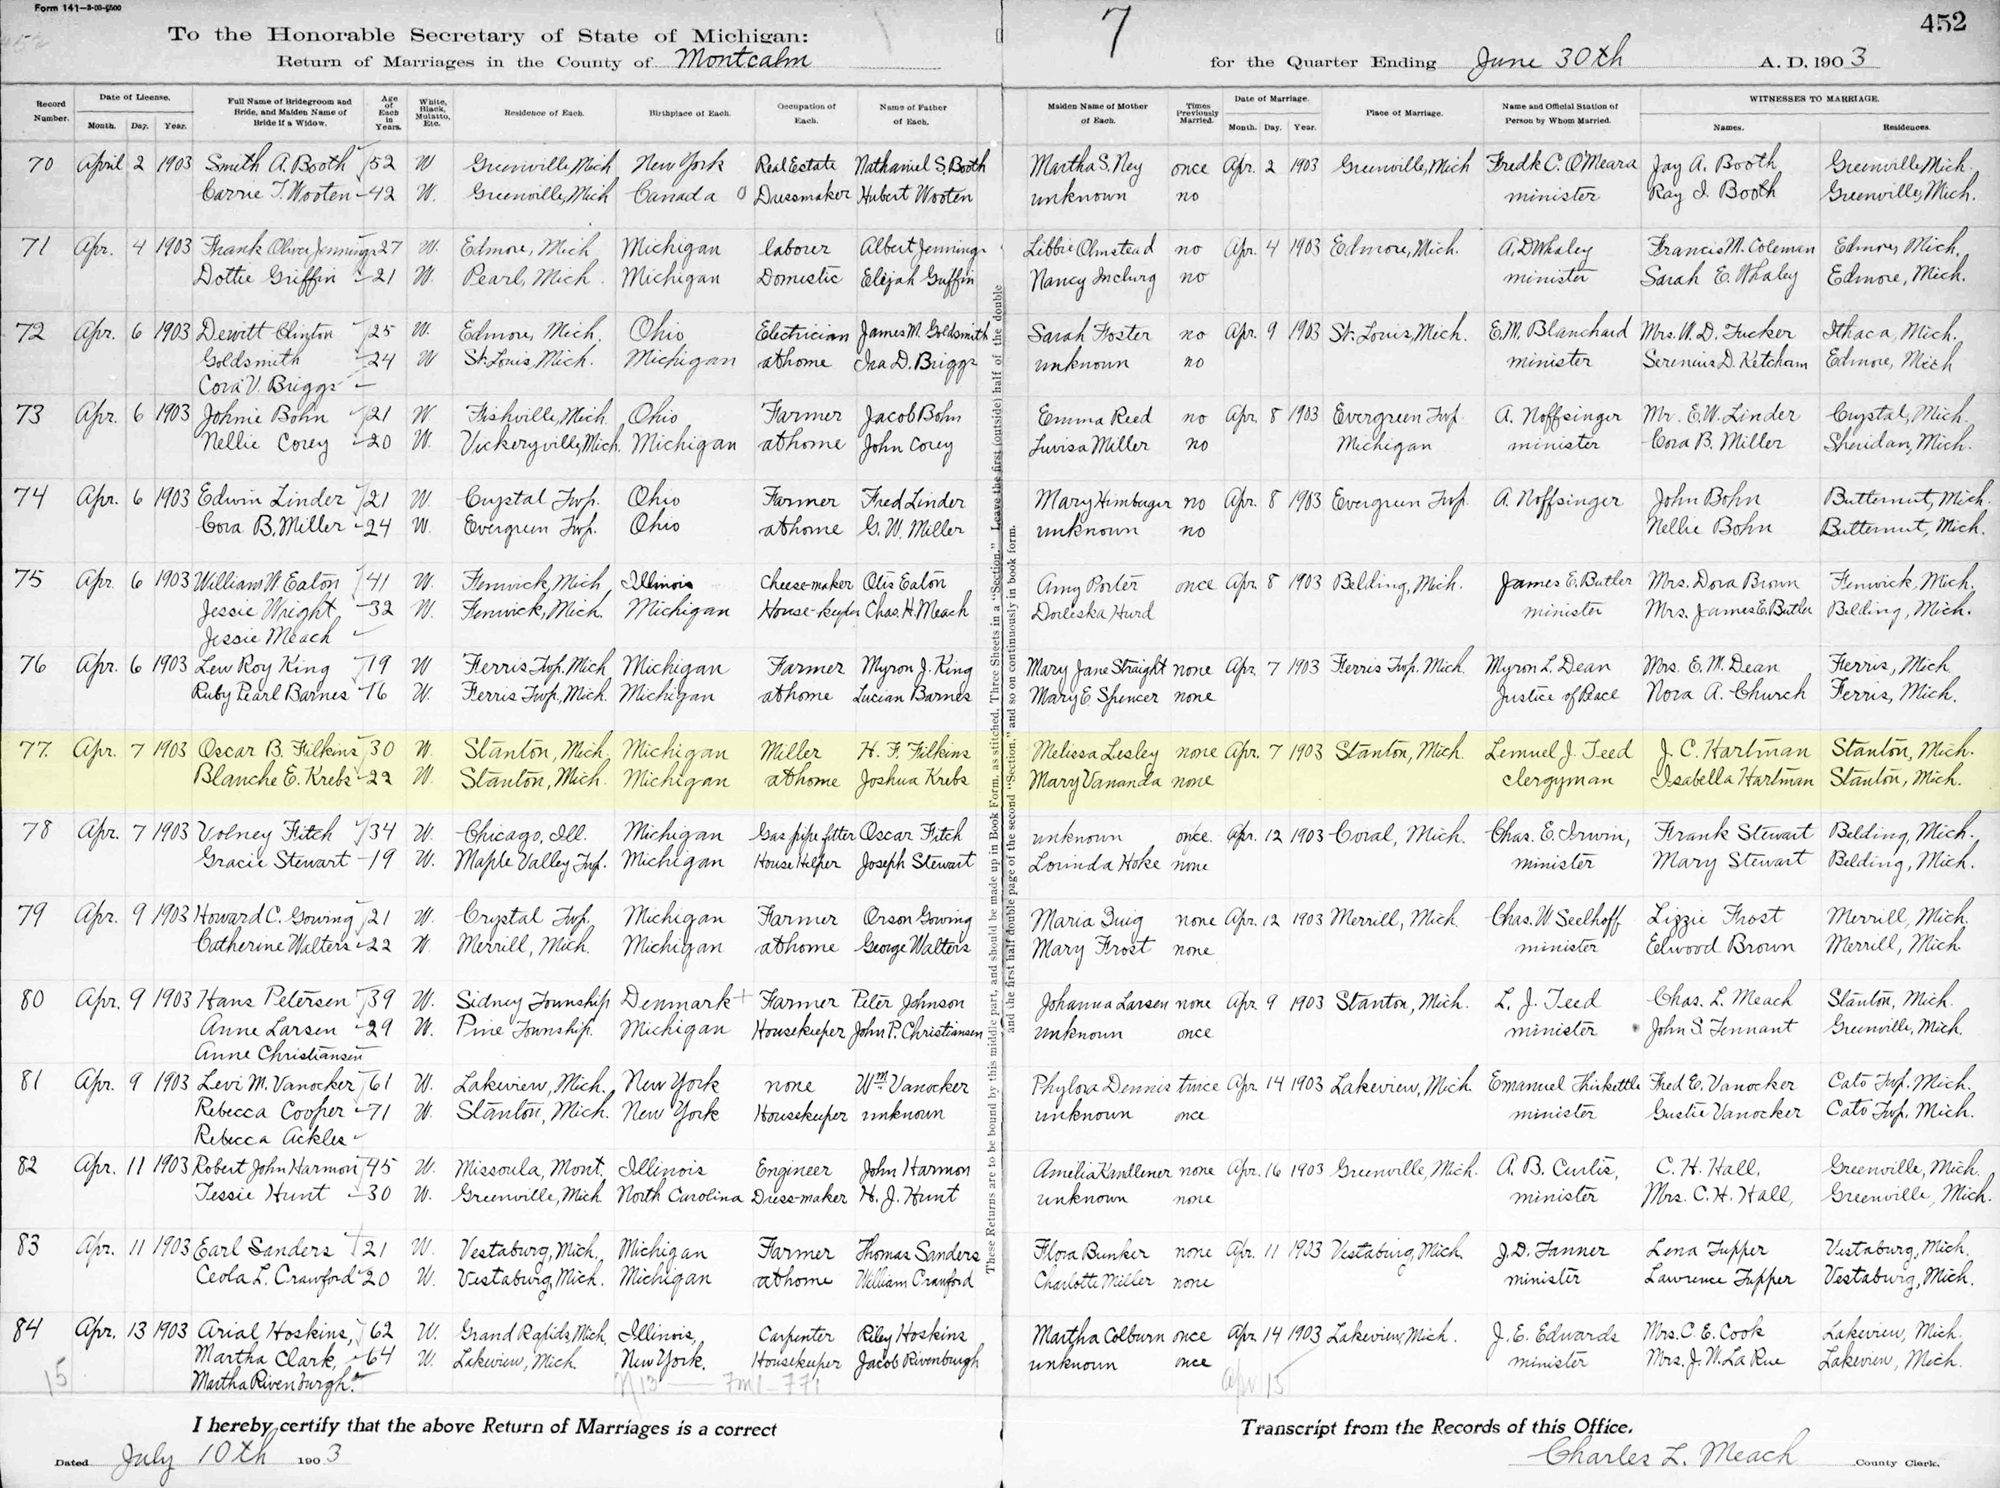 Form 141—3-03-4500
452
To the Honorable Secretary of State of Michigan:
7
Return of Marriages in the County of Montcalm
for the Quarter Ending June 30th A. D. 1903
Record Number. Date of License. Month. Day. Year. Full Name of Bridegroom and Bride, and Maiden Name of Bride if a Widow. Age of Each in Years. White, Black, Mulatto, Etc. Residence of Each. Birthplace of Each. Occupation of Each. Name of Father of Each. Maiden Name of Mother of Each. Times Previously Married. Date of Marriage. Month. Day. Year. Place of Marriage. Name and Official Station of Person by Whom Married. WITNESSES TO MARRIAGE. Names. Residences.
70 April 2 1903 Smith A. Booth 52 W Greenville, Mich New York Real Estate Nathaniel S. Booth Martha S. Ney once Apr. 2 1903 Greenville, Mich Fredk C. O'Meara Jay A. Booth Greenville, Mich.
Carrie T. Wooten 42 W. Greenville, Mich Canada Dressmaker Hubert Wooten unknown no minister Ray I. Booth Greenville, Mich.
71 Apr. 4 1903 Frank Oliver Jennings 27 W. Edmore, Mich Michigan labourer Albert Jennings Libbie Olmstead no Apr 4 1903 Edmore, Mich. A. D. Whaley Francis M. Coleman Edmore, Mich.
Dottie Griffin 21 W. Pearl, Mich. Michigan Domestic Elijah Griffin Nancy Inclurg no minister Sarah E. Whaley Edmore, Mich.
72 Apr. 6 1903 Dewitt Clinton 25 W. Edmore, Mich. Ohio Electrician James M. Goldsmith Sarah Foster no Apr. 9 1903 St. Louis, Mich. E. M. Blanchard Mrs. W. D. Tucker Ithaca, Mich.
Goldsmith 24 W St. Louis, Mich. Michigan at home Ira D. Briggs unknown no minister Serenius D. Ketcham Edmore, Mich
Cora V. Briggs
73 Apr. 6 1903 Johnie Bohn 21 W Fishville, Mich Ohio Farmer Jacob Bohn Emma Reed no Apr. 8 1903 Evergreen Twp. A. Noffsinger Mr. E. W. Linder Crystal, Mich.
Nellie Corey 20 W. Vickeryville, Mich. Michigan at home John Corey Luvisa Miller no Michigan minister Cora B. Miller Sheridan, Mich.
74 Apr. 6 1903 Edwin Linder 21 W. Crystal Twp. Ohio Farmer Fred Linder Mary Himbarger no Apr. 8 1903 Evergreen Twp. A. Noffsinger John Bohn Butternut, Mich.
Cora B. Miller 24 W. Evergreen Twp. Ohio at home G. W. Miller unknown no Nellie Bohn Butternut, Mich.
75 Apr. 6 1903 William W. Eaton 41 W. Fenwick, Mich Illinois Cheese-maker Otis Eaton Amy Porter once Apr. 8 1903 Belding, Mich. James E. Butler Mrs. Dora Brown Fenwick, Mich.
Jessie Wright 32 W. Fenwick, Mich. Michigan House-keeper Chas. H. Meach Dorleska Hurd minister Mrs. James E. Butler Belding, Mich.
Jessie Meach
76 Apr. 6 1903 Lew Roy King 19 W Ferris Twp. Mich Michigan Farmer Myron J. King Mary Jane Straight none Apr. 7 1903 Ferris Twp. Mich. Myron L. Dean Mrs. E. M. Dean Ferris, Mich
Ruby Pearl Barnes 16 W. Ferris Twp, Mich. Michigan at home Lucian Barnes Mary E. Spencer none Justice of Peace Nora A. Church Ferris, Mich.
77. Apr. 7 1903 Oscar B. Filkins 30 W. Stanton, Mich. Michigan Miller H. F. Filkins Melissa Lesley none Apr. 7 1903 Stanton, Mich. Lemuel J. Teed J. C. Hartman Stanton, Mich.
Blanche E. Krebs 22 W. Stanton, Mich. Michigan at home Joshua Krebs Mary Vananda none clergyman Isabella Hartman Stanton, Mich.
78 Apr. 7 1903 Volney Fitch 34 W. Chicago, Ill. Michigan Gas pipe fitter Oscar Fitch unknown once. Apr. 12 1903 Coral, Mich. Chas. E. Irwin, Frank Stewart Belding, Mich.
Gracie Stewart 19 W. Maple Valley Twp. Michigan House Helper Joseph Stewart Lorinda Hoke none minister Mary Stewart Belding, Mich.
79 Apr. 9 1903 Howard C. Gowing 21 W. Crystal Twp. Michigan Farmer Orson Gowing Maria Quig none Apr. 12 1903 Merrill, Mich Chas. W. Seelhoff Lizzie Frost Merrill, Mich.
Catherine Walters 22 W. Merrill, Mich. Michigan at home George Walters Mary Frost none minister Elwood Brown Merrill, Mich
80 Apr. 9 1903 Hans Petersen 39 W. Sidney Township Denmark Farmer Peter Johnson Johanna Larsen none Apr. 9 1903 Stanton, Mich. L. J. Teed Chas. L. Meach Stanton, Mich.
Anne Larsen 29 W. Pine Township. Michigan Housekeeper John P. Christiansen unknown once minister John S. Tennant Greenville, Mich.
Anne Christiansen
81 Apr. 9 1903 Levi M. Vanocker 61 W. Lakeview, Mich. New York none Wm Vanocker Phylora Dennis twice Apr. 14 1903 Lakeview, Mich Emanuel Thirkettle Fred E. Vanocker Cato Twp. Mich.
Rebecca Cooper 71 W. Stanton, Mich. New York Housekeeper unknown unknown once minister Gustie Vanocker Cato Twp. Mich.
Rebecca Ackles
82 Apr. 11 1903 Robert John Harmon 45 W. Missoula, Mont. Illinois Engineer John Harmon none Apr. 16 1903 Greenville, Mich. A. B. Curtis, C. H. Hall, Greenville, Mich.
Tessie Hunt 30 W. Greenville, Mich North Carolina Dress-maker H. J. Hunt unknown none minister Mrs. C. H. Hall, Greenville, Mich.
83 Apr. 11 1903 Earl Sanders 21 W. Vestaburg, Mich. Michigan Farmer Thomas Sanders Flora Bunker none Apr. 11 1903 Vestaburg, Mich. J. D. Tanner Lena Tupper Vestaburg, Mich.
Ceola L. Crawford 20 W. Vestaburg, Mich. Michigan at home William Crawford Charlotte Miller none minister Lawrence Tupper Vestaburg, Mich.
84 Apr. 13 1903 Arial Hoskins, 62 W. Grand Rapids, Mich Illinois, Carpenter Riley Hoskins Martha Colburn once Apr. 14 1903 Lakeview, Mich. J. E. Edwards Mrs. C. E. Cook Lakeview, Mich.
Martha Clark, 64 W. Lakeview, Mich. New York. Housekeeper Jacob Rivenburgh unknown once minister Mrs. J. W. LaRue Lakeview, Mich.
15 Martha Rivenburgh. Apr 15
These Returns are to be bound by this middle part, and should be made up in Book Form, as stitched, Three Sheets in a "Section." Leave the first (outside) half of the double
and the first half double page of the second "Section," and so on continuously in book form.
I hereby certify that the above Return of Marriages is a correct Transcript from the Records of this Office.
Dated July 10th 1903 Charles L. Meach County Clerk.